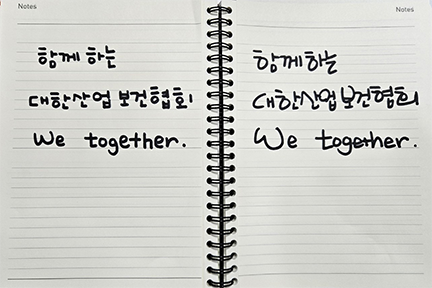 Notes
함께 하는
대한산업보건협회
We together.
Notes
함께하는
대한산업보건협회
We together.